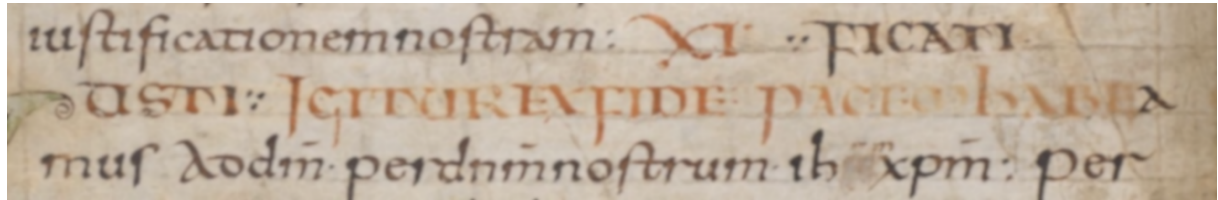 iustificationem nostram: XI ·:· FICATI
USTI ·:· IGITUR EX FIDE PACEM HABEA
mus Ad dm̄ · per dnm̄ nostrum · ih xpm̄ : Per